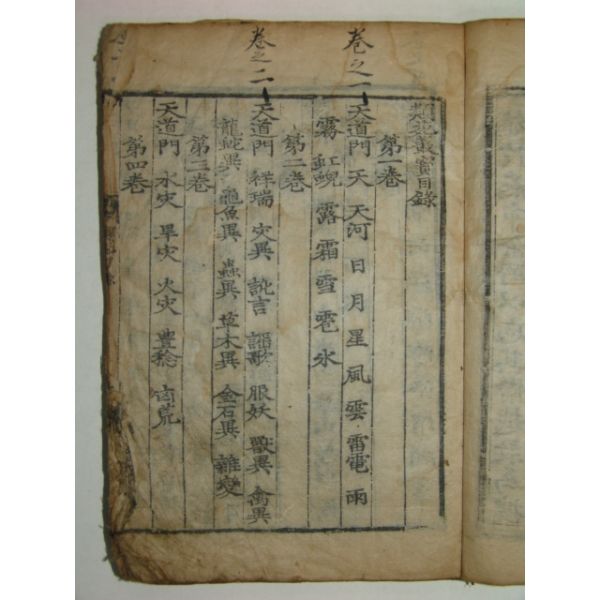 卷之一
卷之二
類苑叢寶目錄
第一卷
天道門 天 天河 日 月 星 風 雲 雷電 雨
霧 虹蜺 露 霜 雪 雹 氷
第二卷
天道門 祥瑞 灾異 訛言 謳歌 服妖 獸異 禽異
龍蛇異 龜魚異 蟲異 草木異 金石異 雜變
第三卷
天道門 水灾 旱灾 火灾 豊稔 凶荒
第四卷